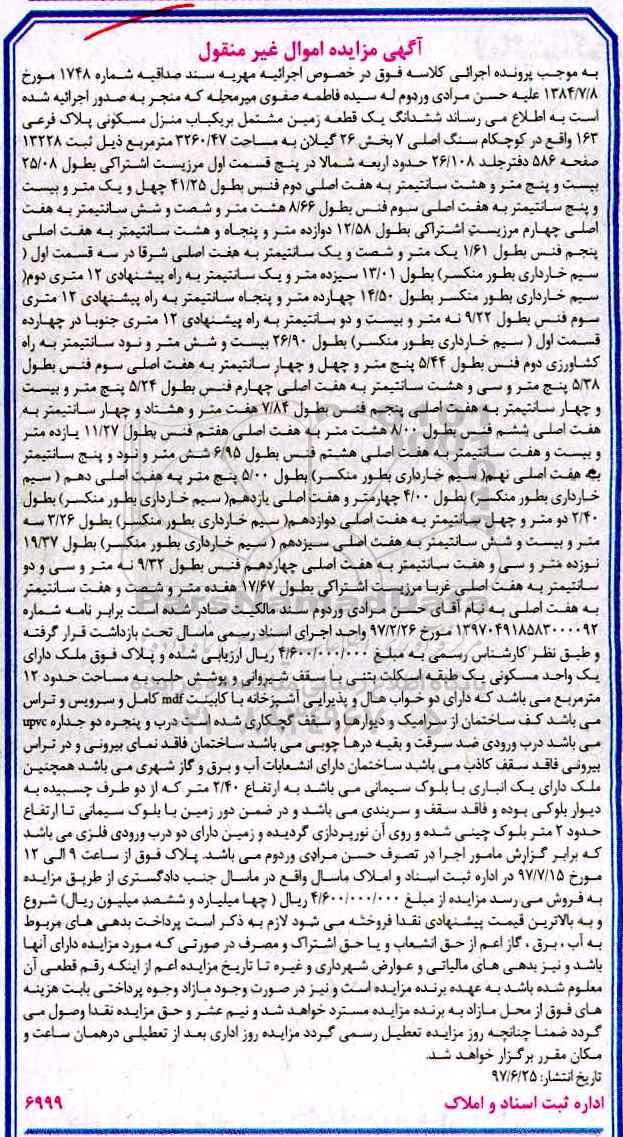 آگهی مزایده اموال غیر منقول
به موجب پرونده اجرائی کلاسه فوق در خصوص اجرائیه مهریه سند صداقیه شماره ۱۷۴۸ مورخ
۱۳۸۴/۷/۸ علیه حسن مرادی وردوم له سیده فاطمه صفوی میرمحله که منجر به صدور اجرائیه شده
است به اطلاع می رساند ششدانگ یک قطعه زمین مشتمل بریکباب منزل مسکونی پلاک فرعی
۱۶۳ واقع در کوچکام سنگ اصلی ۷ بخش ۲۶ گیلان به مساحت ۳۲۶۰/۴۷ مترمربع ذیل ثبت ۱۳۲۲۸
صفحه ۵۸۶ دفترجلد ۲۶/۱۰۸ حدود اربعه شمالا در پنج قسمت اول مرزیست اشتراکی بطول ۲۵/۰۸
بیست و پنج متر و هشت سانتیمتر به هفت اصلی دوم فنس بطول ۴۱/۲۵ چهل و یک متر و بیست
و پنج سانتیمتر به هفت اصلی سوم فنس بطول ۸/۶۶ هشت متر و شصت و شش سانتیمتر به هفت
اصلی چهارم مرزیست اشتراکی بطول ۱۲/۵۸ دوازده متر و پنجاه و هشت سانتیمتر به هفت اصلی
پنجم فنس بطول ۱/۶۱ یک متر و شصت و یک سانتیمتر به هفت اصلی شرقا در سه قسمت اول (
سیم خارداری بطور منکسر) بطول ۱۳/۰۱ سیزده متر و یک سانتیمتر به راه پیشنهادی ۱۲ متری دوم(
سیم خارداری بطور منکسر بطول ۱۴/۵۰ چهارده متر و پنجاه سانتیمتر به راه پیشنهادی ۱۲ متری
سوم فنس بطول ۹/۲۲ نه متر و بیست و دو سانتیمتر به راه پیشنهادی ۱۲ متری جنوبا در چهارده
قسمت اول ( سیم خارداری بطور منکسر) بطول ۲۶/۹۰ بیست و شش متر و نود سانتیمتر به راه
کشاورزی دوم فنس بطول ۵/۴۴ پنج متر و چهل و چهار سانتیمتر به هفت اصلی سوم فنس بطول
۵/۳۸ پنج متر و سی و هشت سانتیمتر به هفت اصلی چهارم فنس بطول ۵/۲۴ پنج متر و بیست
و چهار سانتیمتر به هفت اصلی پنجم فنس بطول ۷/۸۴ هفت متر و هشتاد و چهار سانتیمتر به
هفت اصلی ششم فنس بطول ۸/۰۰ هشت متر به هفت اصلی هفتم فنس بطول ۱۱/۲۷ یازده متر
و بیست و هفت سانتیمتر به هفت اصلی هشتم فنس بطول ۶/۹۵ شش متر و نود و پنج سانتیمتر
به هفت اصلی نهم( سیم خارداری بطور منکسر) بطول ۵/۰۰ پنج متر به هفت اصلی دهم ( سیم
خارداری بطور منکسر) بطول ۴/۰۰ چهارمتر و هفت اصلی یازدهم( سیم خارداری بطور منکسر) بطول
۲/۴۰ دو متر و چهل سانتیمتر به هفت اصلی دوازدهم( سیم خارداری بطور منکسر) بطول ۳/۲۶ سه
متر و بیست و شش سانتیمتر به هفت اصلی سیزدهم ( سیم خارداری بطور منکسر) بطول ۱۹/۳۷
نوزده متر و سی و هفت سانتیمتر به هفت اصلی چهاردهم فنس بطول ۹/۳۲ نه متر و سی و دو
سانتیمتر به هفت اصلی غربا مرزیست اشتراکی بطول ۱۷/۶۷ هفده متر و شصت و هفت سانتیمتر
به هفت اصلی به نام آقای حسن مرادی وردوم سند مالکیت صادر شده است برابر نامه شماره
۱۳۹۷۰۴۹۱۸۵۸۳۰۰۰۰۹۲ مورخ ۹۷/۲/۲۶ واحد اجرای اسناد رسمی ماسال تحت بازداشت قرار گرفته
و طبق نظر کارشناس رسمی به مبلغ ۴/۶۰۰/۰۰۰/۰۰۰ ریال ارزیابی شده و پلاک فوق ملک دارای
یک واحد مسکونی یک طبقه اسکلت بتنی با سقف شیروانی و پوشش حلب به مساحت حدود ۱۲
مترمربع می باشد که دارای دو خواب هال و پذیرایی آشپزخانه با کابینت mdf کامل و سرویس و تراس
می باشد کف ساختمان از سرامیک و دیوارها و سقف گچکاری شده است درب و پنجره دو جداره upvc
می باشد درب ورودی ضد سرقت و بقیه درها چوبی می باشد ساختمان فاقد نمای بیرونی و در تراس
بیرونی فاقد سقف کاذب می باشد ساختمان دارای انشعابات آب و برق و گاز شهری می باشد همچنین
ملک دارای یک انباری با بلوک سیمانی می باشد به ارتفاع ۲/۴۰ متر که از دو طرف چسبیده به
دیوار بلوکی بوده و فاقد سقف و سربندی می باشد و در ضمن دور زمین با بلوک سیمانی تا ارتفاع
حدود ۲ متر بلوک چینی شده و روی آن نورپردازی گردیده و زمین دارای دو درب ورودی فلزی می باشد
که برابر گزارش مامور اجرا در تصرف حسن مرادی وردوم می باشد. پلاک فوق از ساعت ۹ الی ۱۲
مورخ ۹۷/۷/۱۵ در اداره ثبت اسناد و املاک ماسال واقع در ماسال جنب دادگستری از طریق مزایده
به فروش می رسد مزایده از مبلغ ۴/۶۰۰/۰۰۰/۰۰۰ ریال ( چها میلیارد و ششصد میلیون ریال) شروع
و به بالاترین قیمت پیشنهادی نقدا فروخته می شود لازم به ذکر است پرداخت بدهی های مربوط
به آب ، برق ، گاز اعم از حق انشعاب و یا حق اشتراک و مصرف در صورتی که مورد مزایده دارای آنها
باشد و نیز بدهی های مالیاتی و عوارض شهرداری و غیره تا تاریخ مزایده اعم از اینکه رقم قطعی آن
معلوم شده باشد به عهده برنده مزایده است و نیز در صورت وجود مازاد وجوه پرداختی بابت هزینه
های فوق از محل مازاد به برنده مزایده مسترد خواهد شد و نیم عشر و حق مزایده نقدا وصول می
گردد ضمنا چنانچه روز مزایده تعطیل رسمی گردد مزایده روز اداری بعد از تعطیلی درهمان ساعت و
مکان مقرر برگزار خواهد شد.
تاریخ انتشار: ۹۷/۶/۲۵
اداره ثبت اسناد و املاک ۶۹۹۹